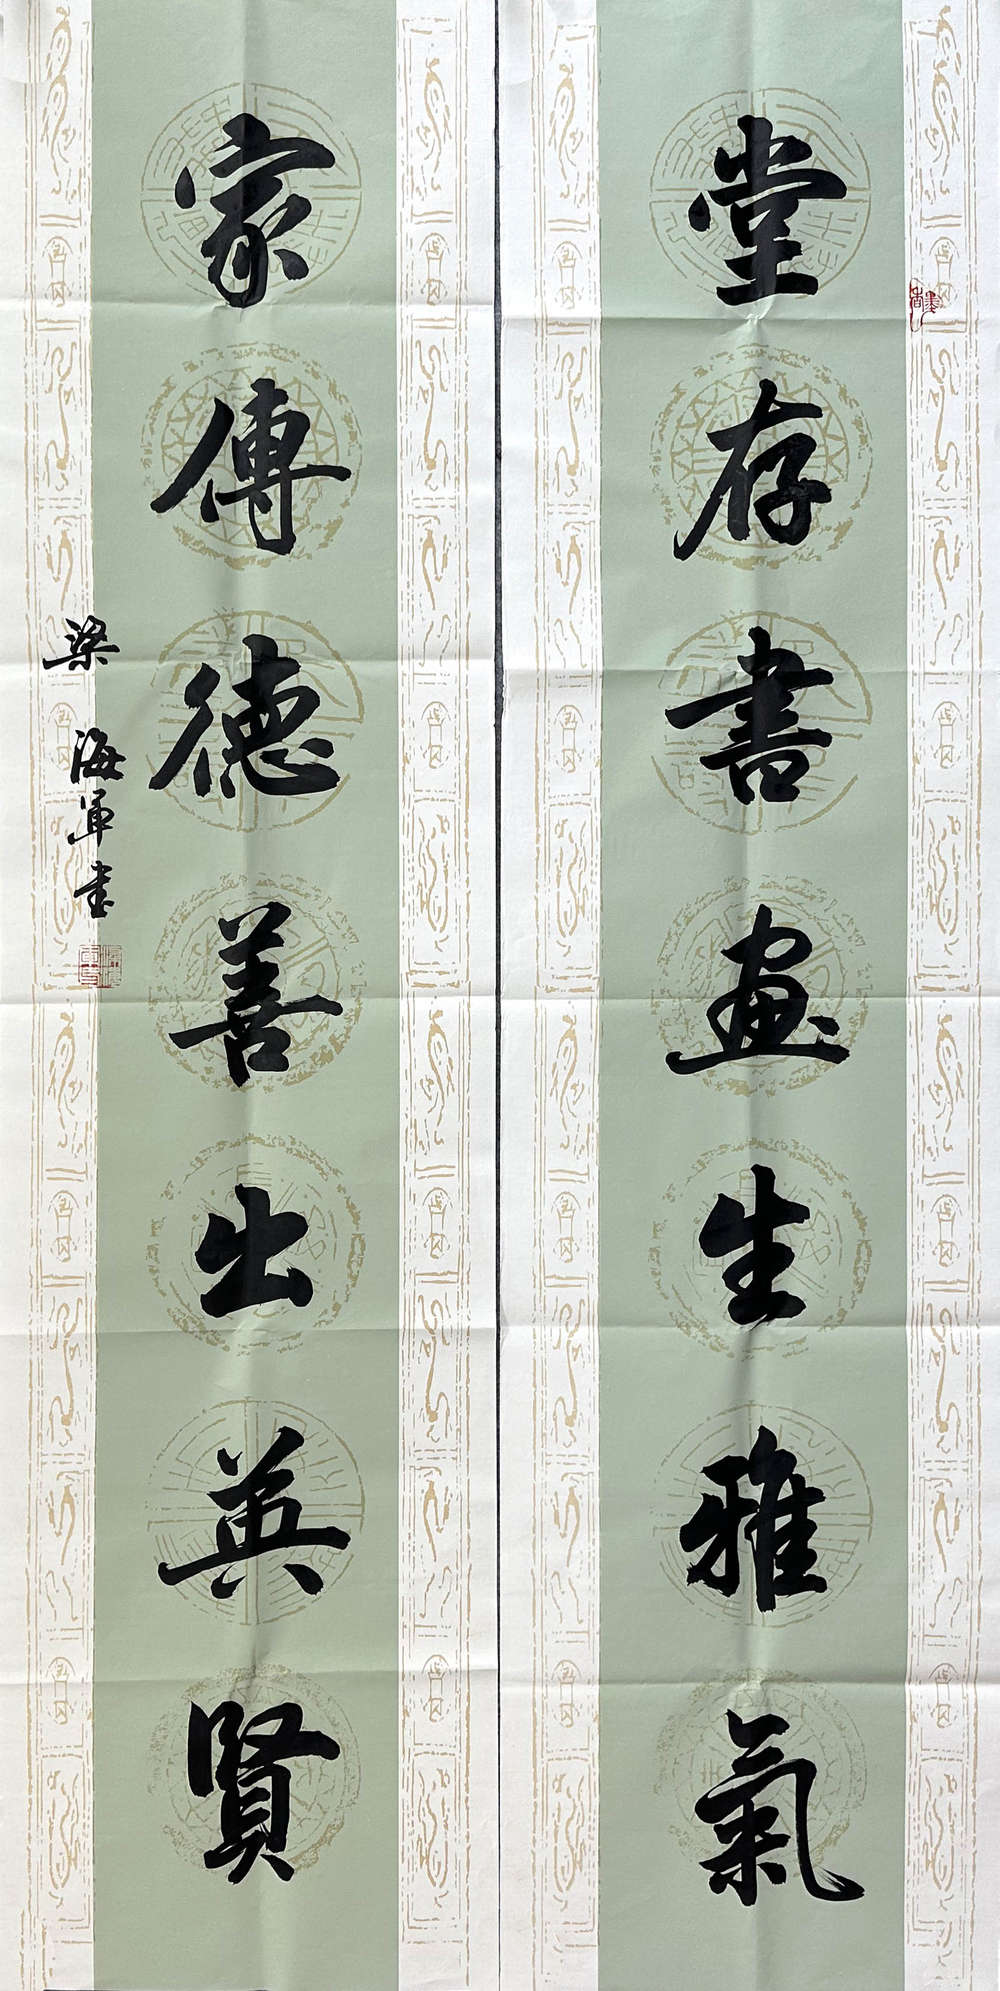 堂存書畫生雅氣
家傳德善出英賢
梁海軍書